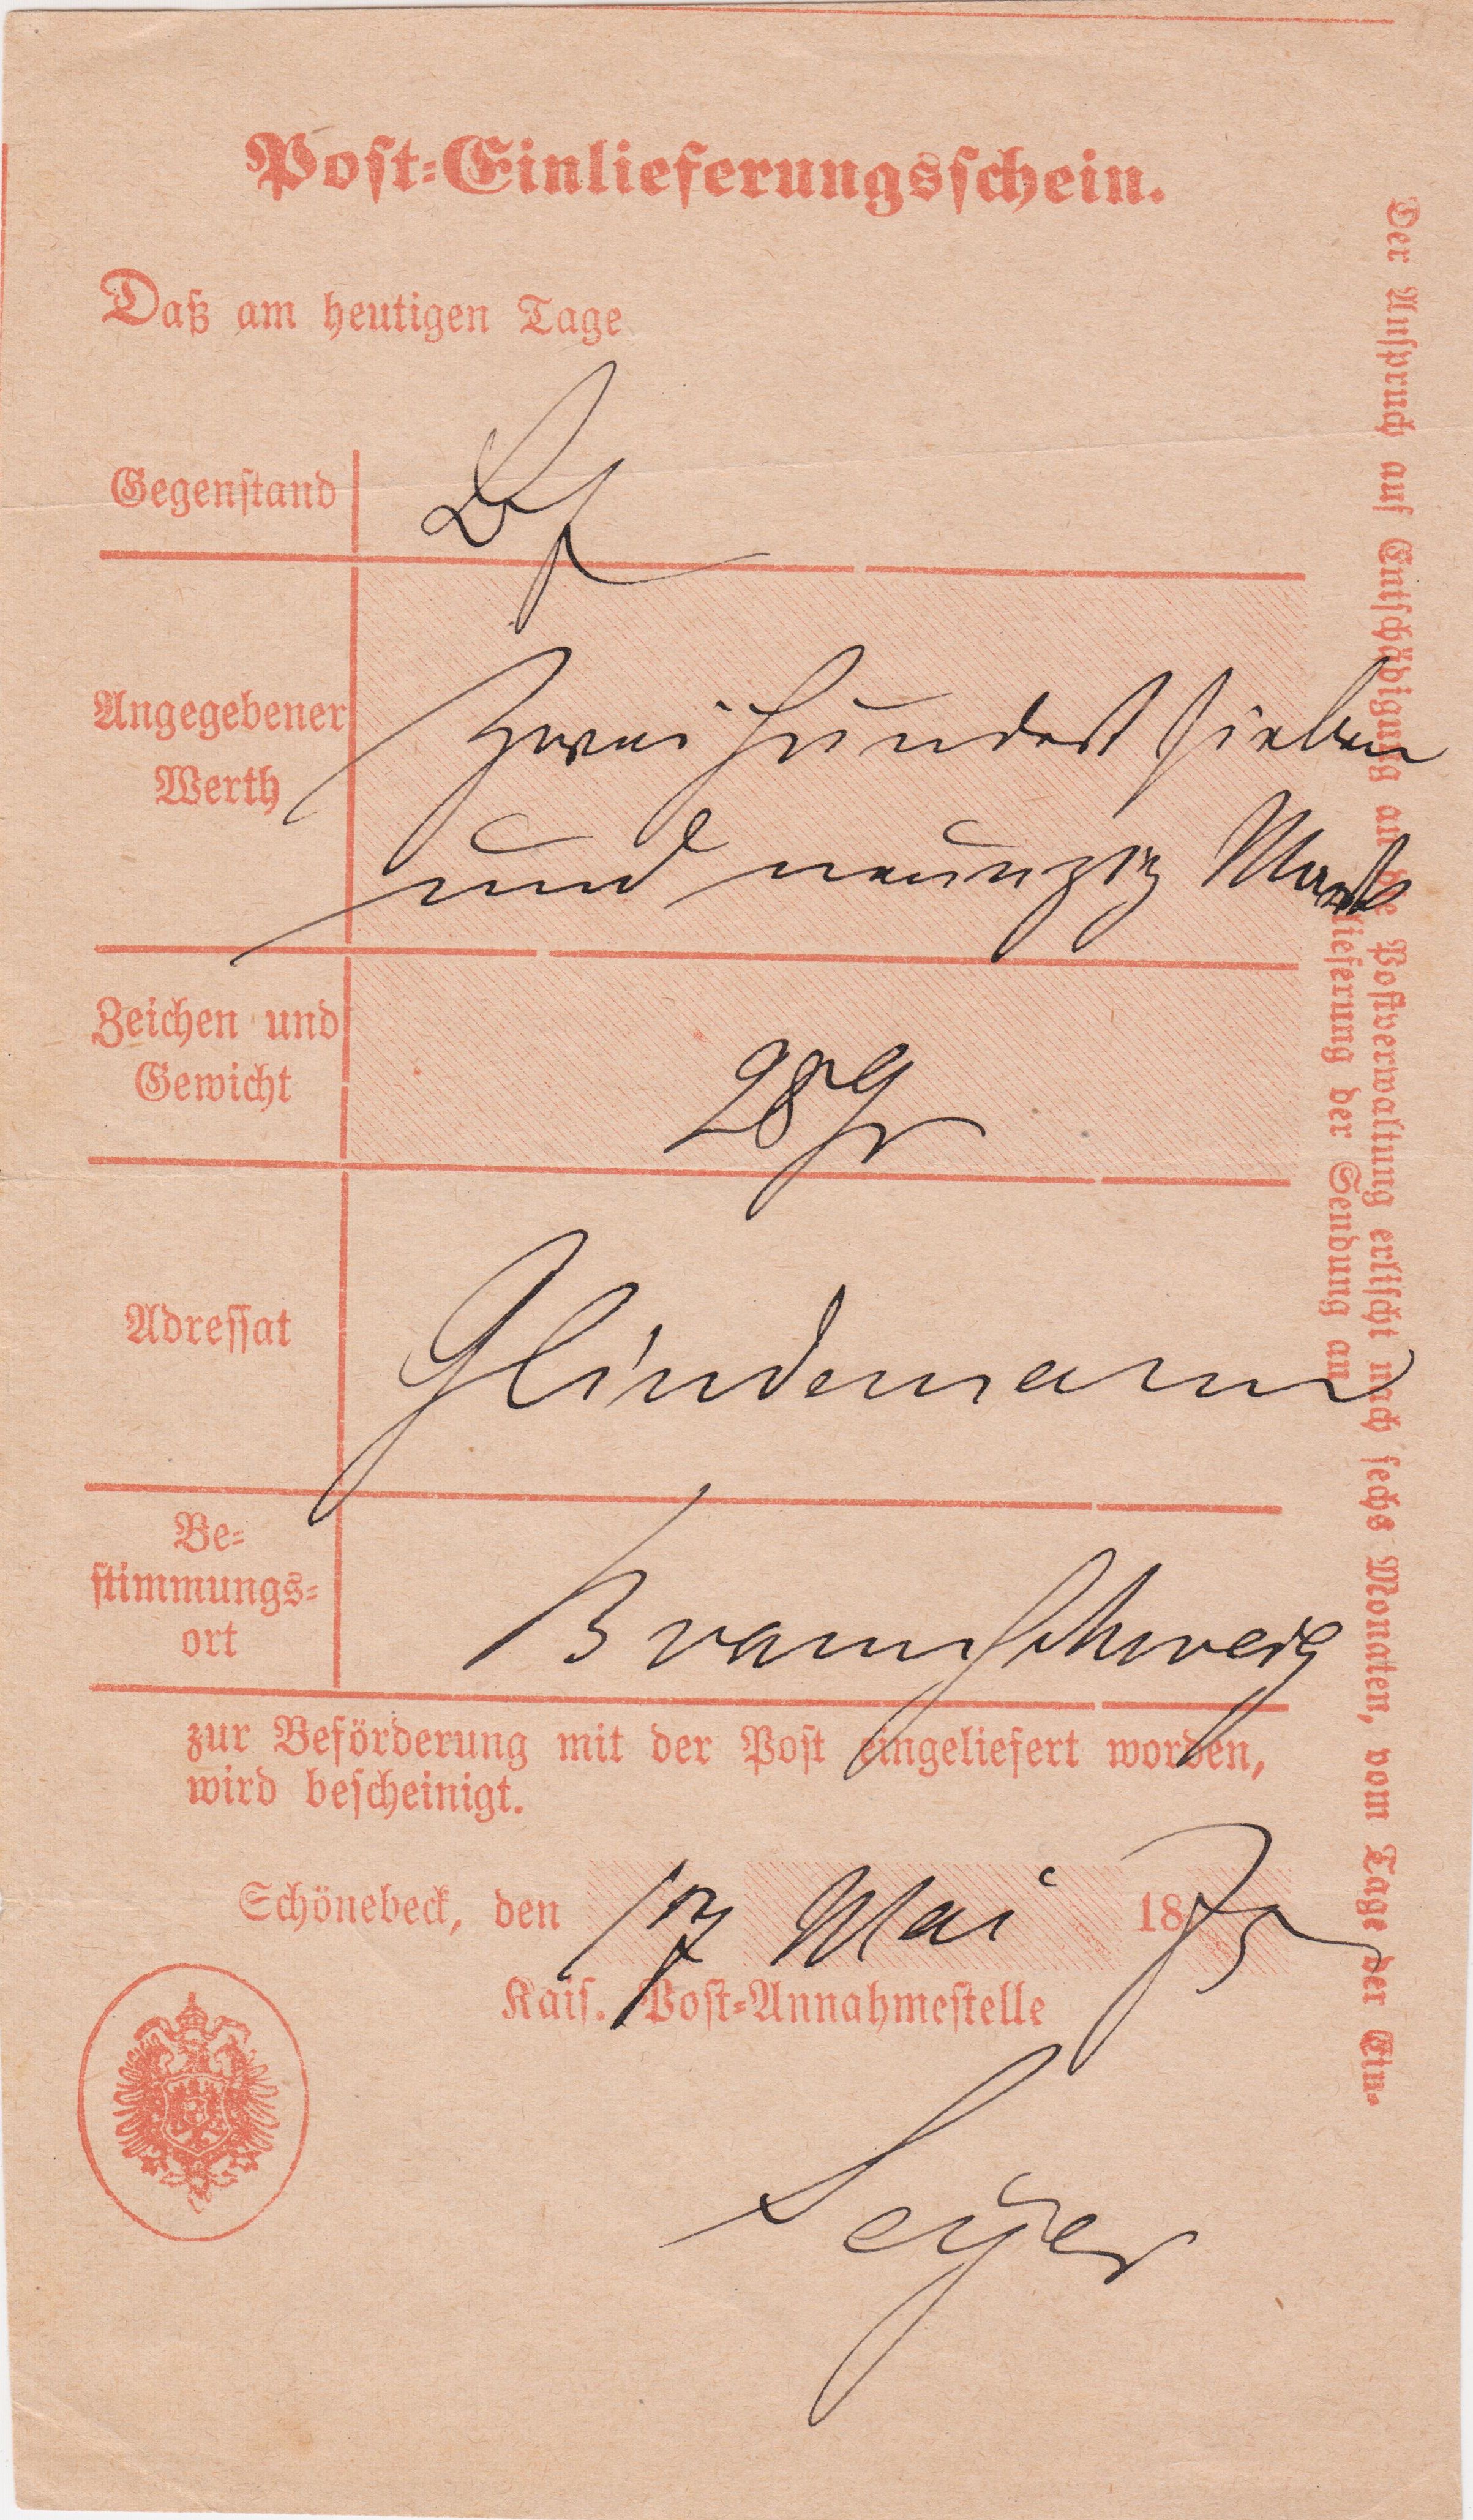 Post-Einlieferungsschein.
Daß am heutigen Tage
Gegenstand Bf
Angegebener
Werth
Zweihundert sieben
und neunzig Mark
Zeichen und
Gewicht
28 Gr
Adressat Glindemann
Be-
stimmungs-
ort
Braunschweig
zur Beförderung mit der Post eingeliefert worden,
wird bescheinigt.
Schönebeck, den 17 Mai 1875
Kais. Post-Annahmestelle
Der Anspruch auf Entschädigung an die Postverwaltung erlischt nach sechs Monaten, vom Tage der Ein-
lieferung der Sendung an